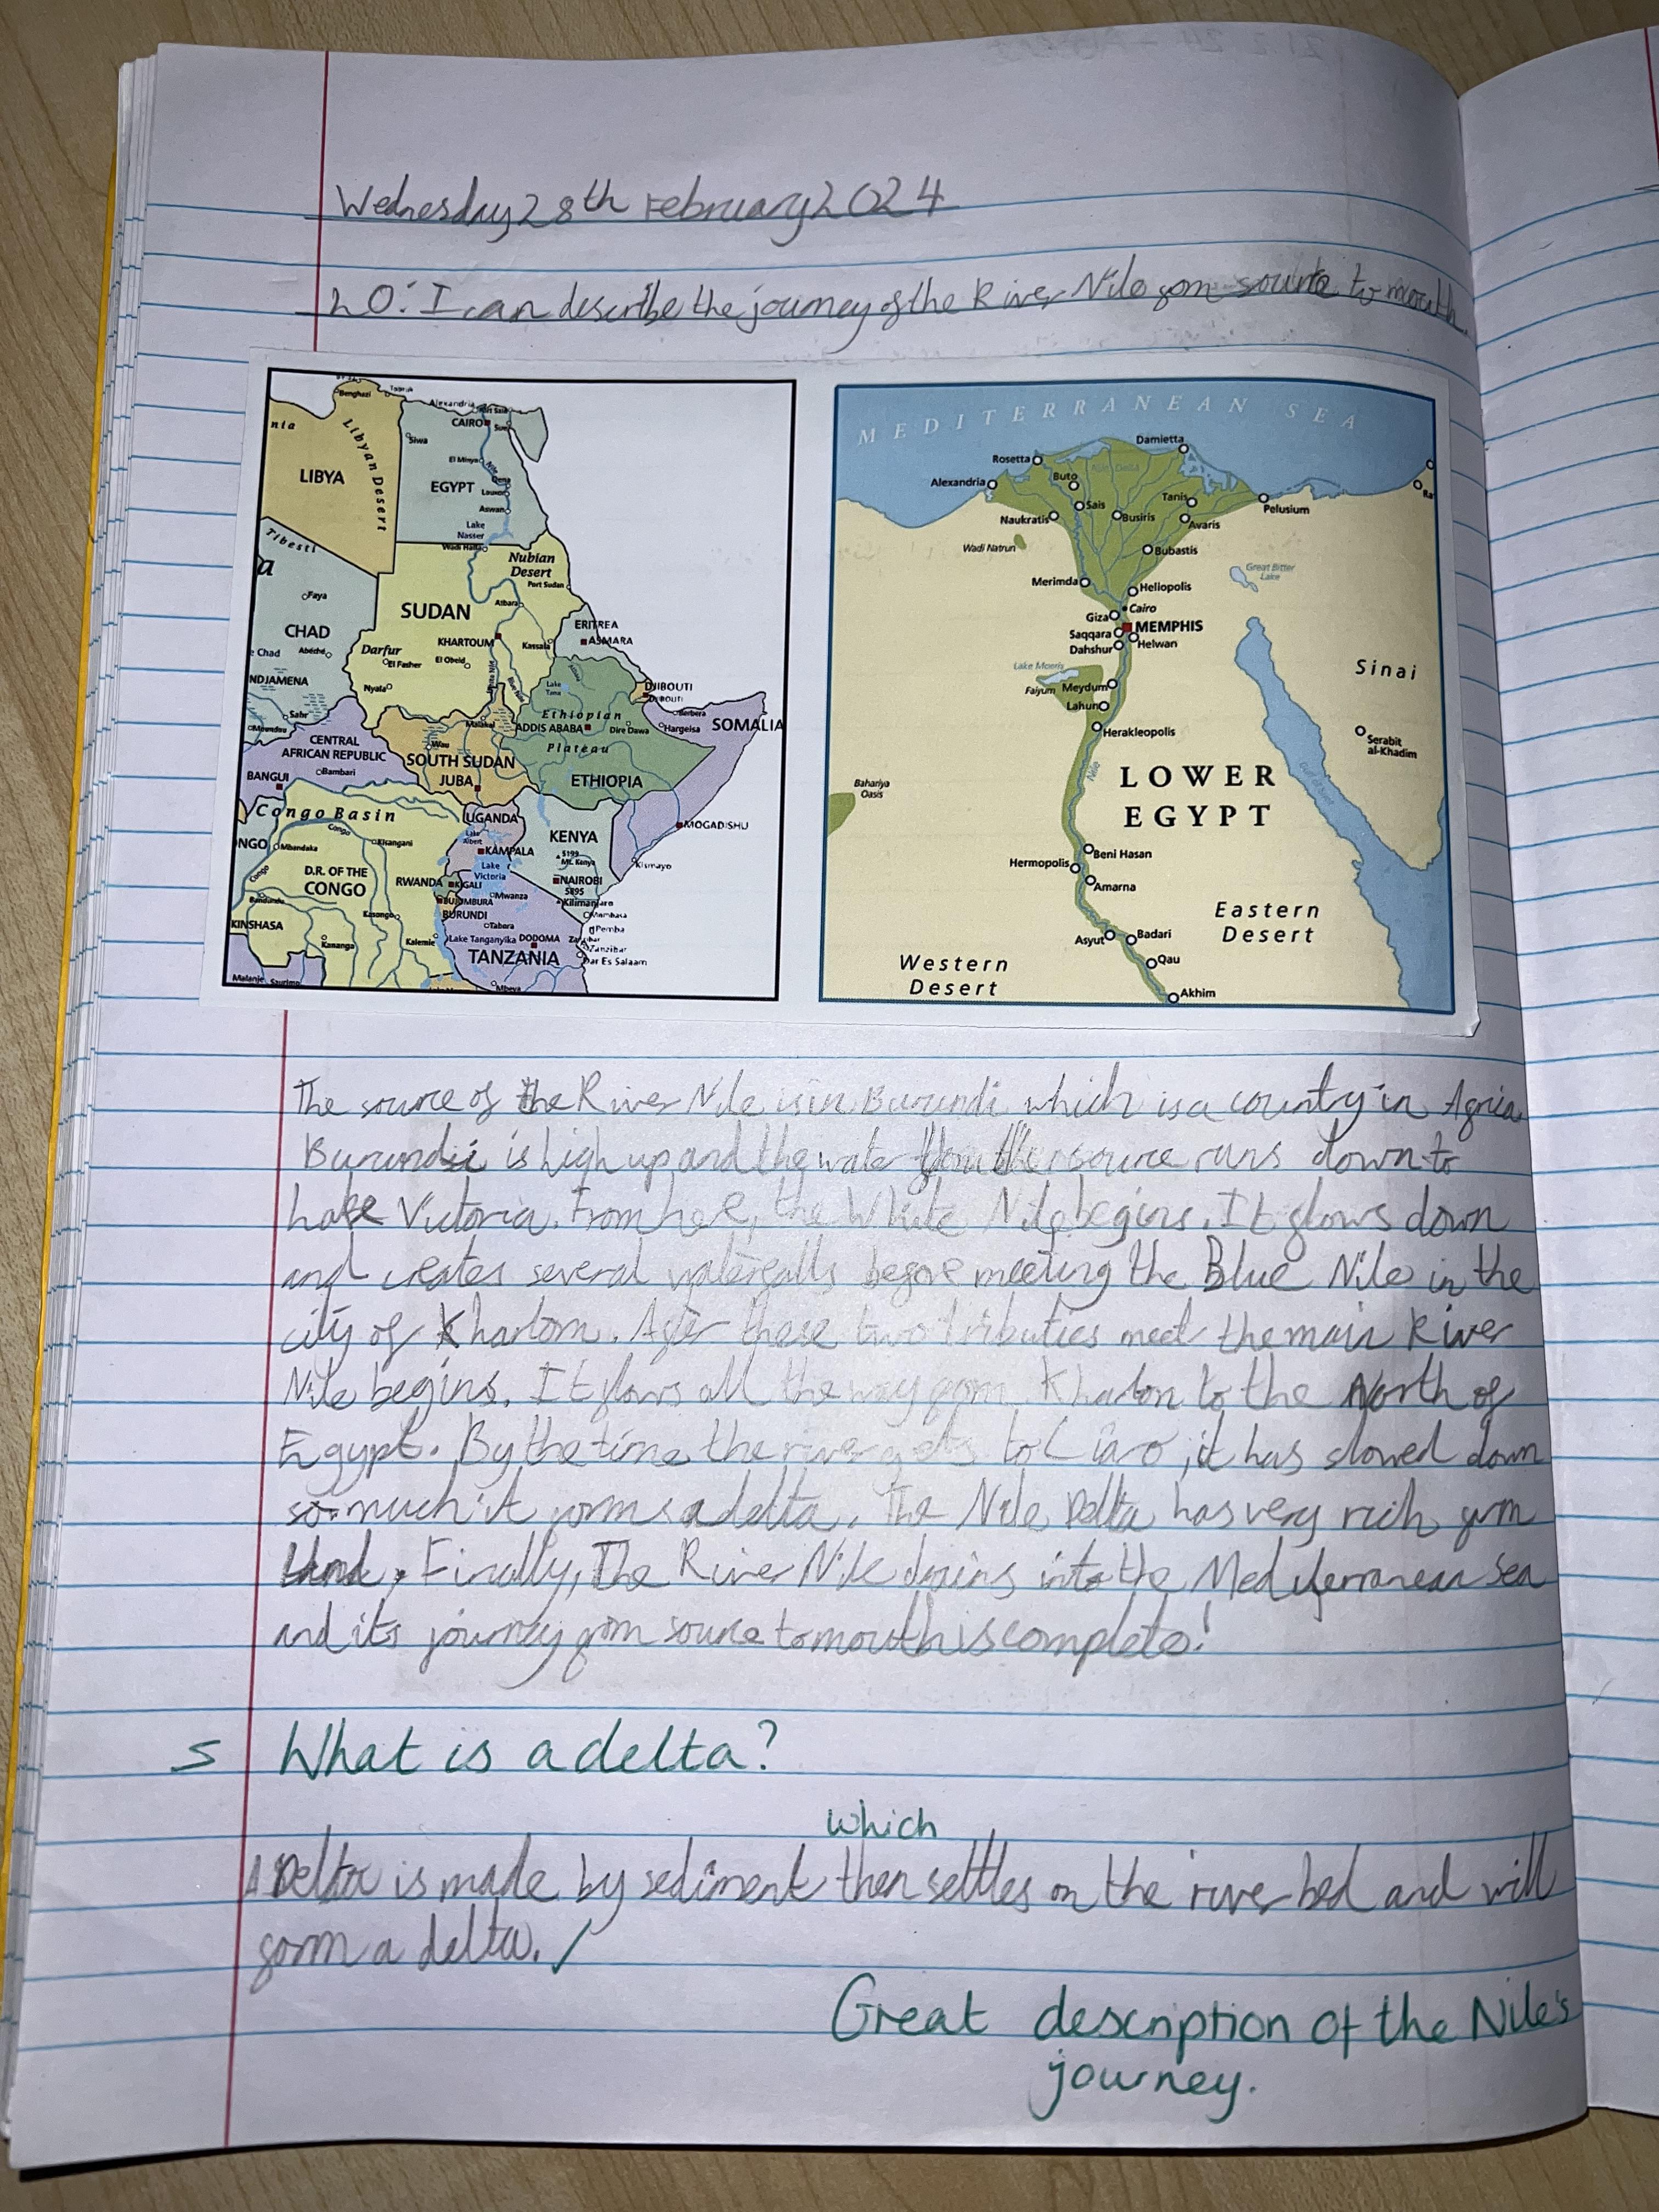 Wednesday 28th February 2024
LO: I can describe the journey of the River Nile from source to mouth.
Benghazi
nia
Libyan Desert
LIBYA
Alexandria
Port Said
CAIRO
Suez
Siwa
El Minya
Nile
Qena
EGYPT
Luxor
Aswan
Lake
Nasser
Wadi Halfa
Tibesti
Nubian
Desert
Port Sudan
a
Faya
SUDAN
Atbara
CHAD
KHARTOUM
Kassala
ERITREA
ASMARA
e Chad
Abéché
Darfur
El Fasher
El Obeid
NDJAMENA
Nyala
White Nile
Blue Nile
Lake
Tana
DJIBOUTI
DJIBOUTI
Sahr
Moundou
Malakal
Ethiopian
Berbera
ADDIS ABABA
Dire Dawa
Hargeisa
SOMALIA
CENTRAL
AFRICAN REPUBLIC
Wau
Plateau
SOUTH SUDAN
BANGUI
Bambari
JUBA
ETHIOPIA
Congo Basin
UGANDA
MOGADISHU
Congo
Lake
Albert
KENYA
NGO
Mbandaka
Kisangani
KAMPALA
5199
Mt. Kenya
Kismayo
Congo
D.R. OF THE
CONGO
Lake
Victoria
NAIROBI
RWANDA
KIGALI
5895
Kilimanjaro
Bandundu
BUJUMBURA
Mwanza
Mombasa
KINSHASA
Kasongo
BURUNDI
Tabora
Pemba
Kananga
Kalemie
Lake Tanganyika
DODOMA
Zanzibar
Zanzibar
TANZANIA
Dar Es Salaam
Malanje
Saurimo
Mbeya
MEDITERRANEAN SEA
Damietta
Rosetta
Nile Delta
Alexandria
Buto
Tanis
Ra
Sais
Pelusium
Naukratis
Busiris
Avaris
Wadi Natrun
Bubastis
Great Bitter
Lake
Merimda
Heliopolis
Cairo
Giza
MEMPHIS
Saqqara
Helwan
Dahshur
Lake Moeris
Sinai
Faiyum
Meydum
Lahun
Herakleopolis
Serabit
al-Khadim
Nile
LOWER
EGYPT
Gulf of Suez
Bahariya
Oasis
Beni Hasan
Hermopolis
Amarna
Eastern
Desert
Asyut
Badari
Qau
Western
Desert
Akhim
The source of the River Nile is in Burundi which is a country in Africa
Burundi is high up and the water from the source runs down to
Lake Victoria. From here, the White Nile begins. It flows down
and creates several waterfalls before meeting the Blue Nile in the
city of Khartom. After these two tributies meet the main River
Nile begins. It flows all the way from Khartom to the North of
Egypt. By the time the river gets to Ciaro, it has slowed down
so much it forms a delta. The Nile Delta has very rich farm
land. Finally, The River Nile drains into the Mediterranean sea
and its journey from source to mouth is complete!
S What is a delta?
which
A Delta is made by sediment then settles on the river bed and will
form a delta. ✓
Great description of the Nile's
journey.